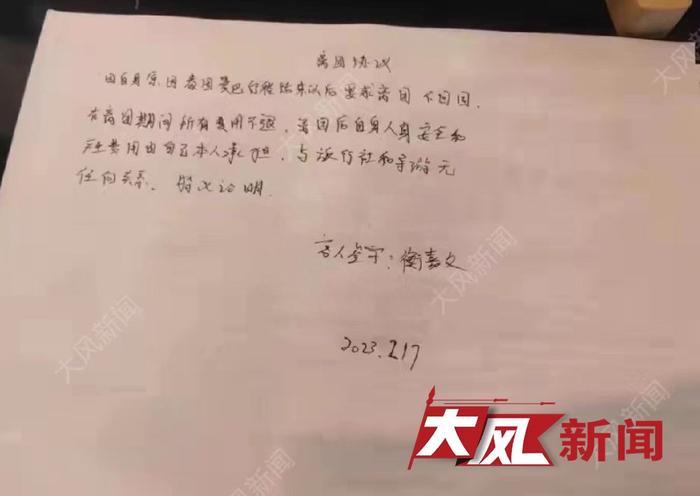 离团协议
因自身原因春团曼巴行程结束以后要求离团不回国.
在离团期间所有费用不退,离团后自身人身安全和
产生费用由自己本人承担,与旅行社和导游无
任何关系. 特此证明.
客人签字:衡嘉文
2023.2.17
大风新闻
大风新闻
大风新闻
大风新闻
大风新闻